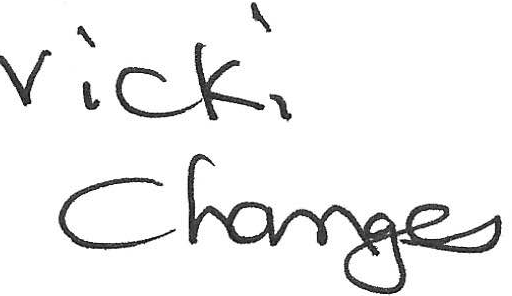 Vicki
Changes